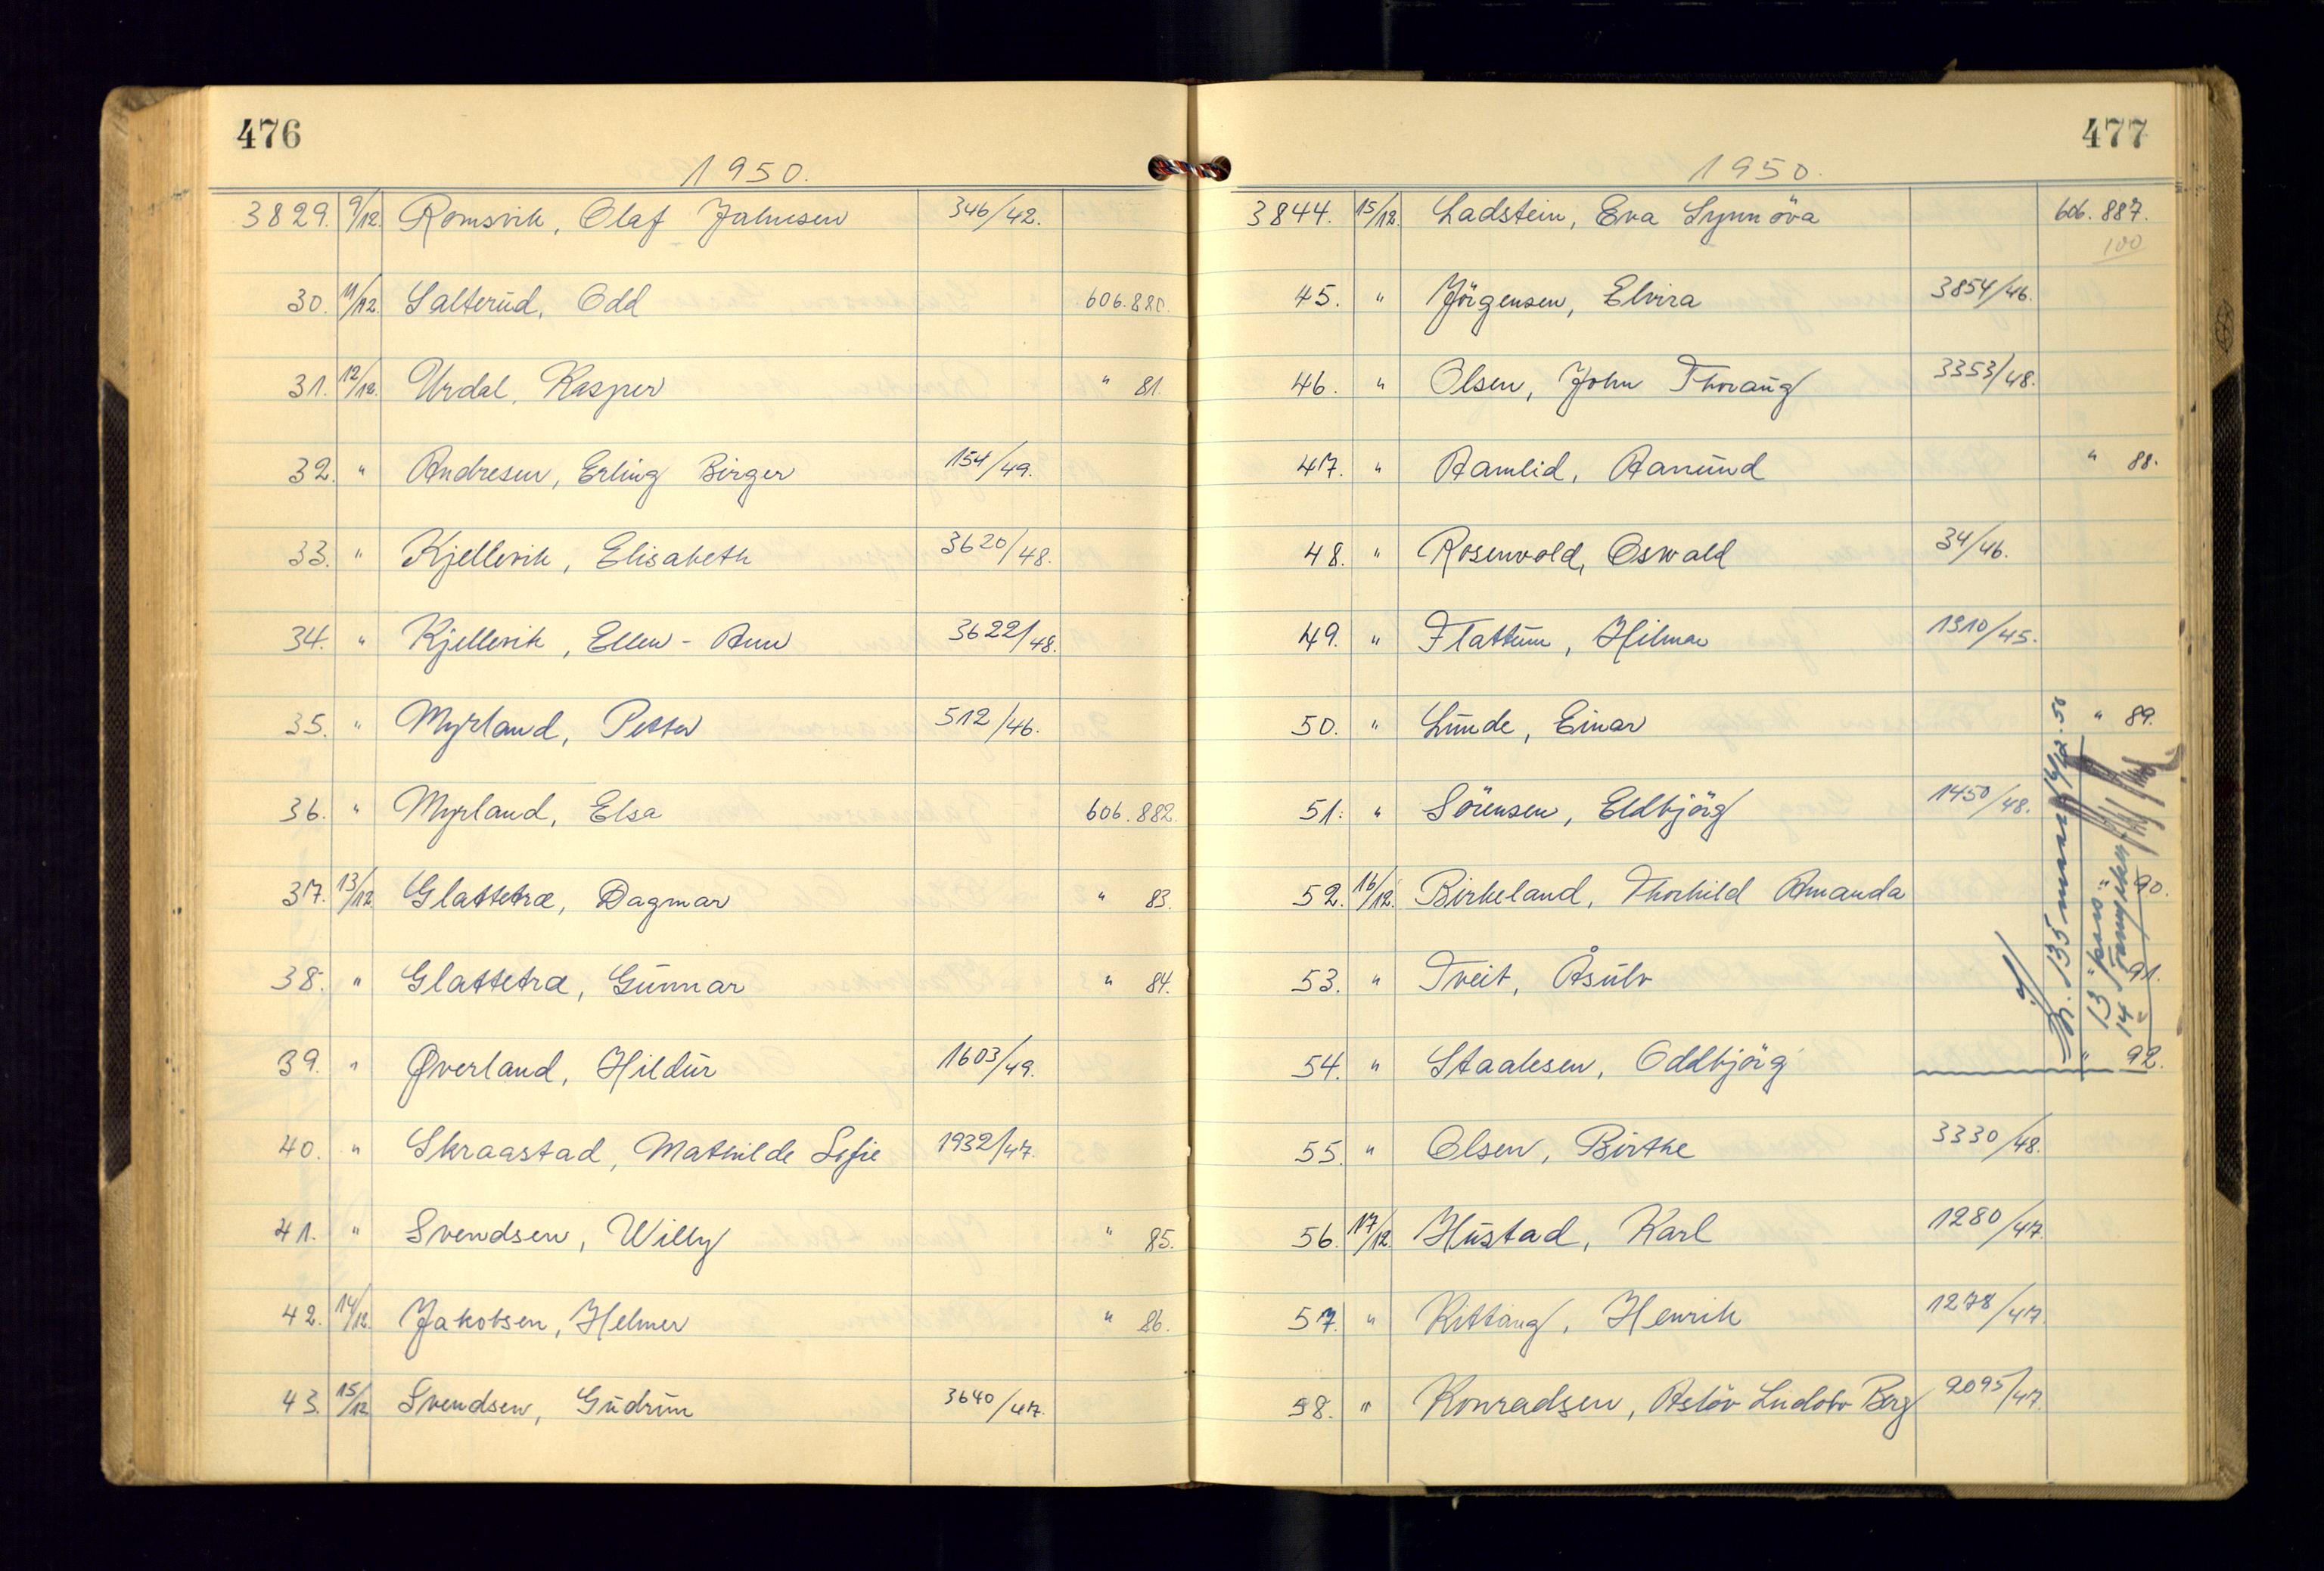 476
1950.
3829. 9/12. Romsvik, Olaf Jahnsen 346/42.
30. 11/12. Salterud, Odd 606.880.
31. 12/12. Urdal, Kasper " 81.
32. " Andresen, Erling Birger 154/49.
33. " Kjellevik, Elisabeth 3620/48.
34. " Kjellevik, Ellen - Ann 3622/48.
35. " Myrland, Petter 512/46.
36. " Myrland, Elsa 606.882.
37. 13/12 Glattetræ, Dagmar " 83.
38. " Glattetræ, Gunnar " 84.
39. " Øverland, Hildur 1603/49.
40. " Skraastad, Mathilde Sofie 1932/47.
41. " Svendsen, Willy " 85.
42. 14/12. Jakobsen, Helmer " 86.
43. 15/12 Svendsen, Gudrun 3640/47.
477
1950.
3844. 15/12. Ladstein, Eva Synnöva 606.887.
100
45. " Jörgensen, Elvira 3854/46.
46. " Olsen, John Thoraug 3353/48.
47. " Aamlid, Aanund " 88.
48. " Rosenvold, Oswald 34/46.
49. " Flattum, Hilmar 1310/45.
50. " Lunde, Einar " 89.
51. " Sörensen, Eldbjörg 1450/48.
52. 16/12. Birkeland, Thorhild Amanda " 90.
53. " Tveit, Åsulv 91.
54. " Staalesen, Oddbjörg " 92.
55. " Olsen, Birthe 3330/48.
56. 17/12. Hustad, Karl 1280/47.
57. " Kittang, Henrik 1278/47.
58. " Konradsen, Aslöv Ludolv Berg 2095/47.
135
13
14